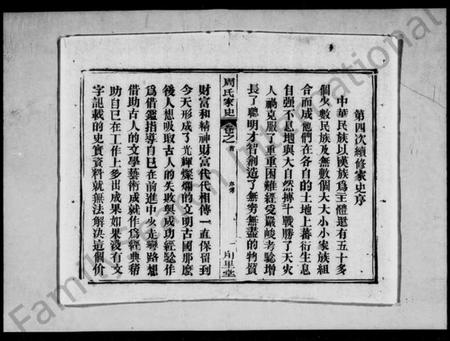 第四次續修家史序
中華民族以漢族爲主體還有五十多
個少數民族及無數個大大小小家族組
合而成他們在各自的土地上蕃衍生息
自强不息地與大自然搏斗戰勝了天災
人禍克服了重重困難經受嚴峻考驗增
長了聰明才智創造了無穷無盡的物質
周氏家史
卷之首
財富和精神財富代代相傳一直保留到
今天形成了光輝燦爛的文明古國那麽
後人想吸取古人的失敗與成功經騐作
爲借鑑指導自已在前進中少走彎路想
借助古人的文學藝術成就作爲經典帮
助自已在工作上多出成果如果没有文
字記載的史實資料就無法解决這個价
FamilySearch International